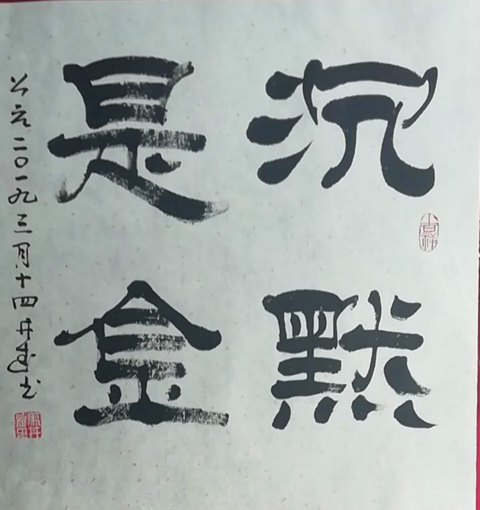 沉默
是金
公元二〇一九三月十四